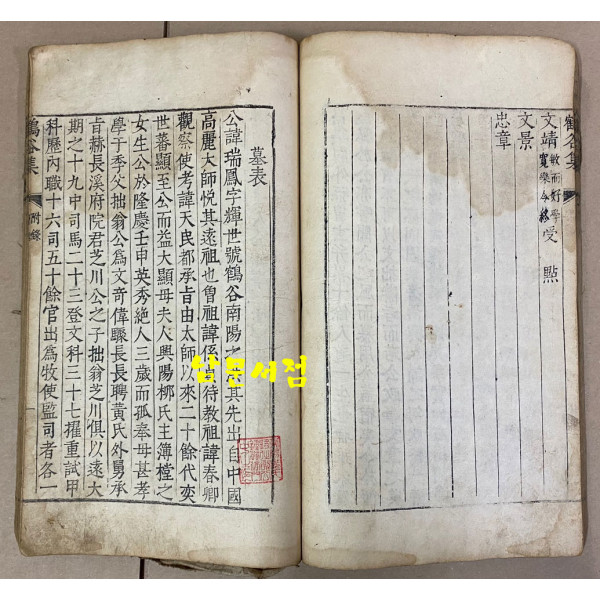 鶴谷集
文靖 敏而好學 寬樂令終 受點
文景
忠章
墓表
公諱瑞鳳字輝世號鶴谷南陽之 其先出自中國
高麗太師悅其遠祖也曾祖諱係 待教祖諱春卿
觀察使考諱天民都承旨由太師以來二十餘代奕
世蕃顯至公而益大顯母夫人興陽柳氏主簿樘之
女生公於隆慶壬申英秀絶人三歲而孤奉母甚孝
學于季父拙翁公爲文奇偉驟長長聘黃氏外舅承
旨赫長溪府院君芝川公之子拙翁芝川俱以遠大
期之十九中司馬二十三登文科三十七擢重試甲
科歷內職十六司五十餘官出爲牧使監司者各一
鶴谷集
附錄
삼문서점